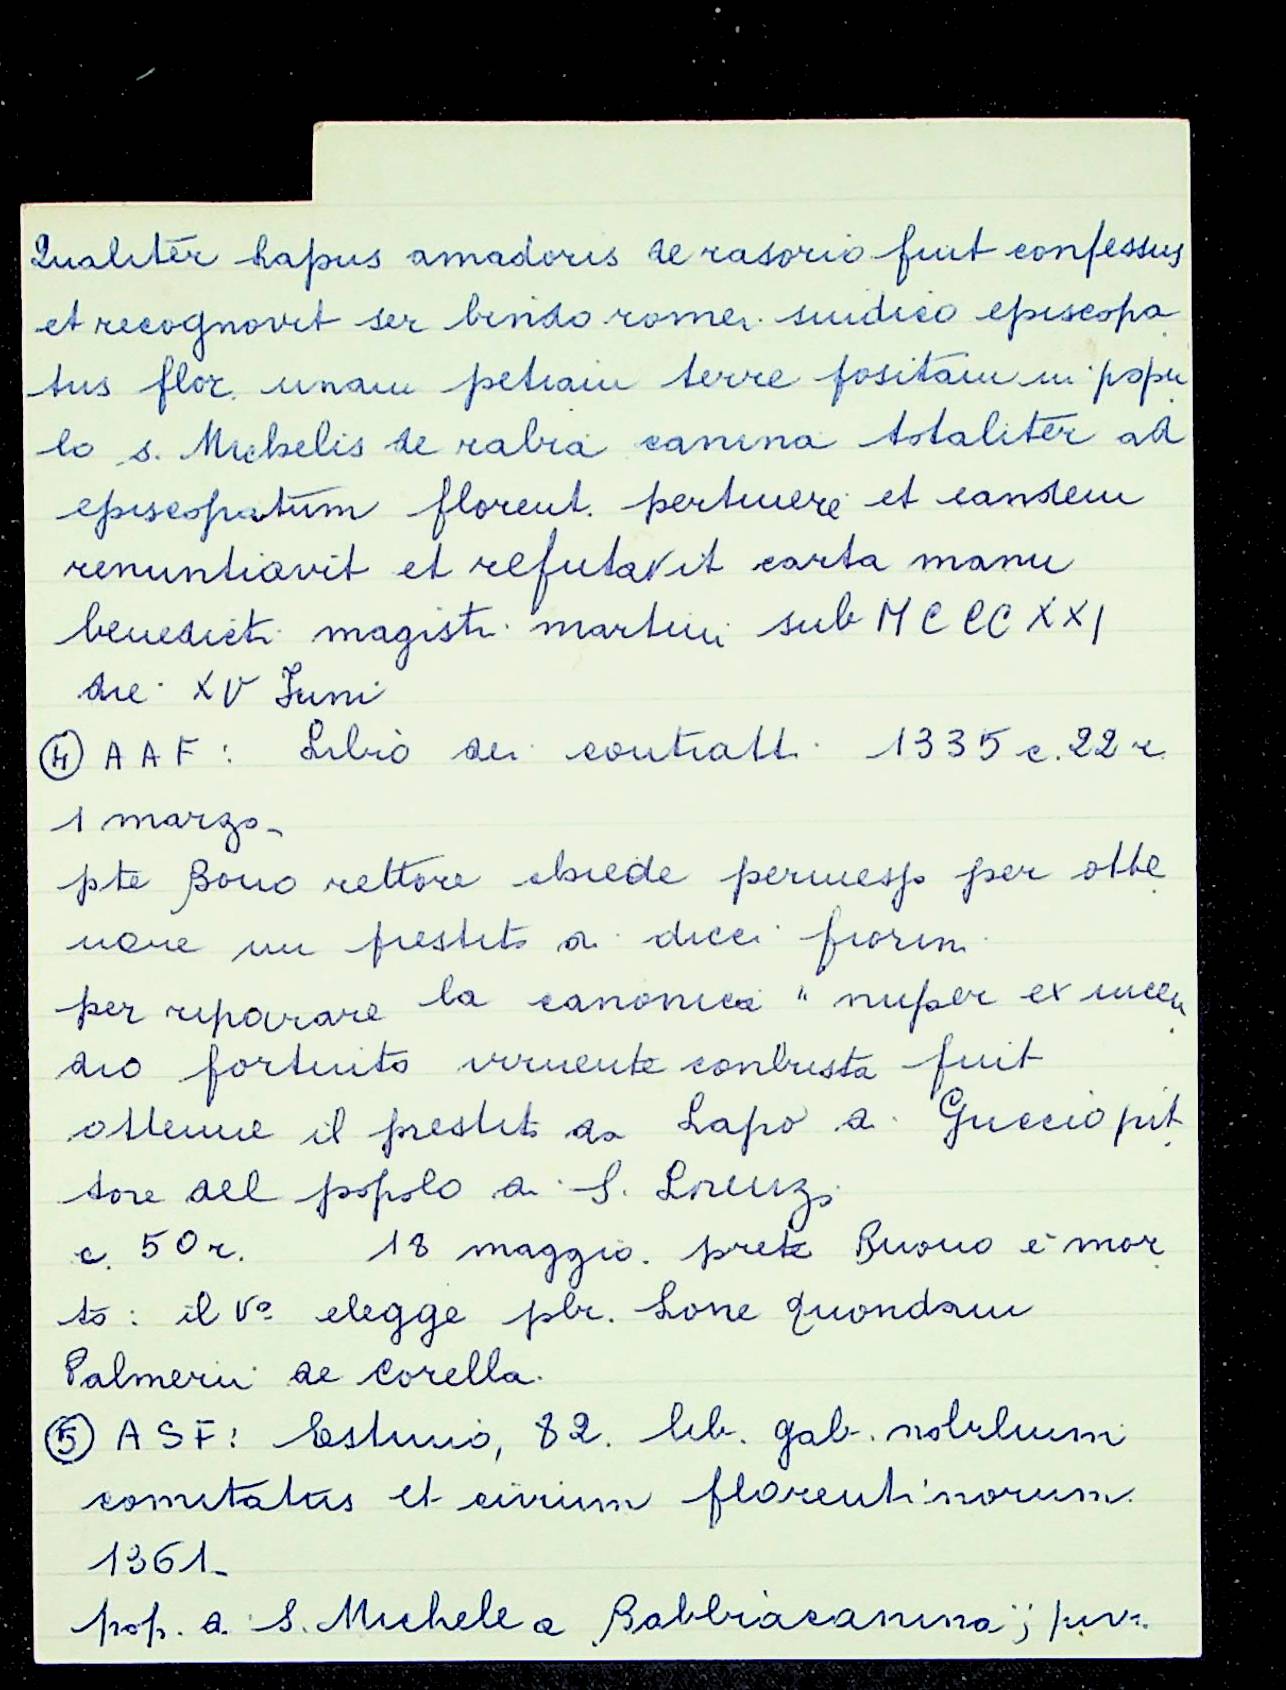 Qualiter hapus amadoris de rasorio fuit confessus
et recognovit ser bindo romei sindico episcopa
tus flor. unam petiam terre positam in popu
lo s. Michelis de rabia canina totaliter ad
episcopatum florent. pertinere et eandem
renuntiavit et refutavit carta manu
benedicti magistri martini sub MCCCXXI
die XV Juni
④ AAF: Libro dei contratti 1335 c. 22 r.
1 marzo -
pte Bono rettore chiede permesso per otte
nere un prestito di dieci fiorini
per riparare la canonica " nuper ex incen
dio fortuito irruente conbusta fuit
ottenne il prestito da Lapo di Guccio pit
tore del popolo di S. Lorenzo
c. 50 r. 18 maggio. prete Buono è mor
to: il Vo elegge pbr. Lone quondam
Palmerii de Corella.
⑤ ASF: Estimo, 82. lib. gab. nobilium
comitatus et civium florentinorum
1361 -
pop. di S. Michele a Rabbiacanina;